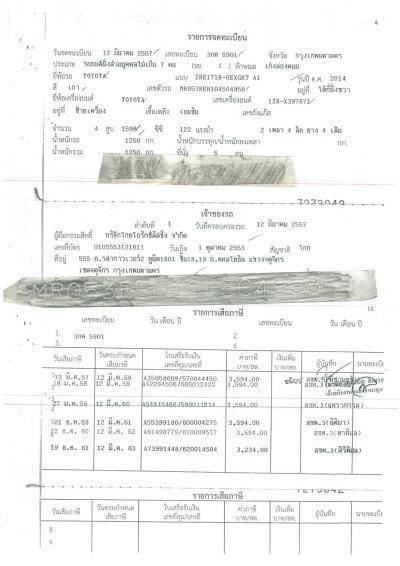 4
รายการจดทะเบียน
วันจดทะเบียน 12 มีนาคม 2557 เลขทะเบียน 3กค 5901 จังหวัด กรุงเทพมหานคร
ประเภท รถยนต์นั่งส่วนบุคคลไม่เกิน 7 คน (รย. 1) ลักษณะ เก๋งสองตอน
ยี่ห้อรถ TOYOTA แบบ ZRE171R-GEXGKT A1 รุ่นปี ค.ศ. 2014
สี เทา เลขตัวรถ MR053REH104504958 อยู่ที่
ยี่ห้อเครื่องยนต์ TOYOTA เลขเครื่องยนต์ 1ZR-X397871
อยู่ที่ ซ้ายเครื่อง เชื้อเพลิง เบนซิน เลขถังแก๊ส
จำนวน 4 สูบ 1598 ซีซี 122 แรงม้า 2 เพลา 4 ล้อ ยาง 4 เส้น
น้ำหนักรถ 1250 กก. น้ำหนักบรรทุก/น้ำหนักลงเพลา กก.
น้ำหนักรวม 1250 กก. ที่นั่ง 5 คน
7273042
เจ้าของรถ
ลำดับที่ 1 วันที่ครอบครองรถ 12 มีนาคม 2557
ผู้ถือกรรมสิทธิ์ บริษัทไทยโอริกซ์ลีสซิ่ง จำกัด
เลขที่บัตร 0105553121611 วันเกิด 1 ตุลาคม 2553 สัญชาติ ไทย
ที่อยู่ 555 อ.รสาทาวเวอร์2 ยูนิต1801 ชั้น18,19 ถ.พหลโยธิน แขวงจตุจักร
เขตจตุจักร กรุงเทพมหานคร
16
รายการเสียภาษี
เลขทะเบียน วัน เดือน ปี เลขทะเบียน วัน เดือน ปี
1. 3กค 5901 2.
3. 4.
วันเสียภาษี วันครบกำหนดเสียภาษี ใบเสร็จรับเงิน เล่มที่คุม/เลขที่ ค่าภาษี บาท/สต. เงินเพิ่ม บาท/สต. ผู้บันทึก นายทะเบียน
12 มี.ค.57 12 มี.ค.58 A35058609/570044450 3,594.00
19 ม.ค.58 12 มี.ค.59 A42294506/580012422 3,594.00
27 ม.ค.59 12 มี.ค.60 A53815466/590011814 3,594.00
21 ธ.ค.59 12 มี.ค.61 A55399180/600004275 3,594.00
22 ธ.ค. 60 12 มี.ค. 62 A61498779/610009517 3,594.00
19 ธ.ค. 61 12 มี.ค. 63 A73991448/620014504 3,234.60
รายการเสียภาษี
วันเสียภาษี วันครบกำหนดเสียภาษี ใบเสร็จรับเงิน เล่มที่คุม/เลขที่ ค่าภาษี บาท/สต. เงินเพิ่ม บาท/สต. ผู้บันทึก นายทะเบียน
8
9